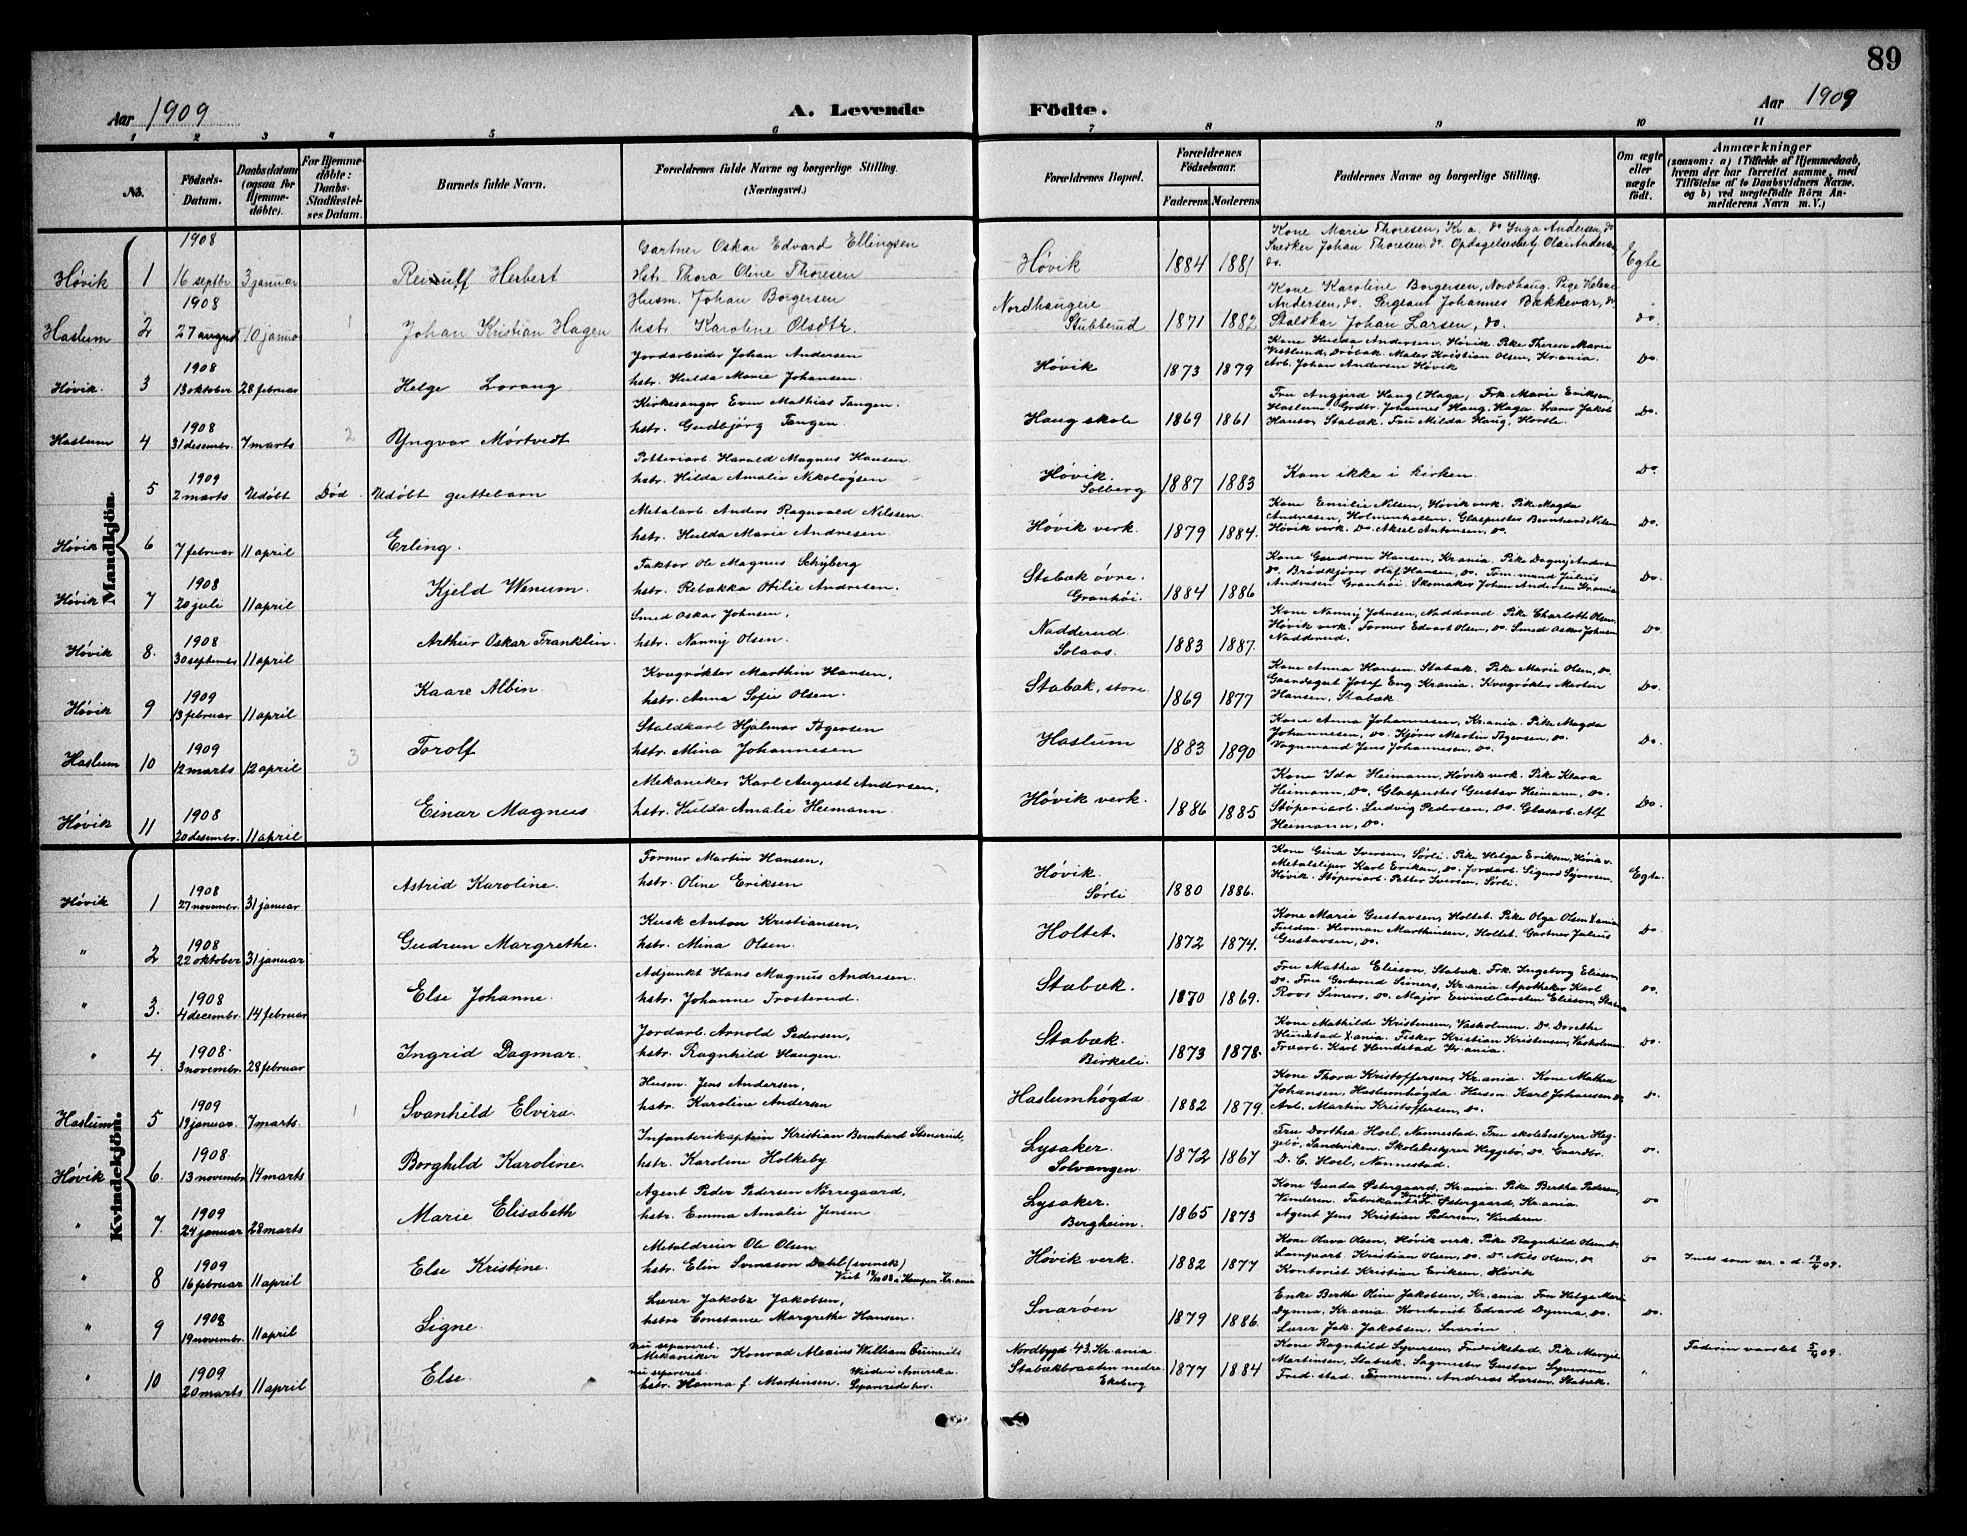 89
Aar 1909
A. Levende Födte.
Aar 1909
1 2 3 4 5 6 7 8 9 10 11
No. Födsels-Datum. Daabsdatum (ogsaa for Hjemmedöbte). For Hjemmedöbte: Daabs-Stadfæstelses Datum. Barnets fulde Navn. Forældrenes fulde Navne og borgerlige Stilling. (Næringsvei.) Forældrenes Bopæl. Forældrenes Födselsaar. Faderens Moderens Faddernes Navne og borgerlige Stilling. Om ægte eller uægte födt. Anmærkninger (saasom: a) i Tilfælde af Hjemmedaab, hvem der har forrettet samme, med Tilföielse af to Daabsvidners Navne, og b) ved uægtefödte Börn Anmelderens Navn m. V.)
Mandkjön.
Høvik 1 1908 16 septbr 3 januar Herbert
Gartner Oskar Edvard Ellingsen
Hstr. Thora Oline Thoresen
Høvik 1884 1881
Kone Marie Thoresen, Kr.a. do Inga Andersen, do
Snedker Johan Thoresen, do.
do. Egte
Haslum 2 1908 27 august 10 januar 1 Johan Kristian Hagen
Husm. Johan Borgersen
hstr. Karoline Olsdtr.
Nordhaugeie
Stubberud 1871 1882
Kone Karoline Borgersen, Nordhaug. Pige
Andersen, do. Sergeant Johannes Bækkevar, do
Staldkar Johan Larsen, do. do.
Høvik. 3 1908 13 oktober 28 februar Helge Lorang
Jordarbeider Johan Andersen
hstr. Hulda Marie Johansen.
Høvik 1873 1879
Kone Hulda Andersen, Høvik. Pike Marie
Vestlund, Drøbak. Maler Kristian Olsen, Kr.ania.
Arb. Johan Andersen Høvik Do.
Haslum 4 1908 31 desembr. 7 marts 2 Yngvar Mørtvedt
Kirkesanger Even Mathias Tangen.
hstr. Gudbjørg Tangen.
Haug skole 1869 1861
Haug, Haga, Frk. Marie Eriksen,
Haslum. Grdbr. Johannes Haug, Haga. Jakob
Hanson, Stabæk. Fru Milda Haug, Do.
5 1909 2 marts Udöbt Död Udöbt guttebarn
Potteriarb. Harald Magnus Hansen
hstr. Hilda Amalie Nikolaysen
Høvik.
Solberg 1887 1883
Kam ikke i kirken. Do
Høvik 6 7 februar 11 april Erling.
Metalarb. Anders Ragnvald Nilssen
hstr. Hulda Marie Andresen.
Høvik verk. 1879 1884.
Kone Emilie Nilsen, Høvik verk. Pike Magda
Andresen, Holmenkollen. Glaspuster Bernhard Nilsen
Høvik verk. Do. Aksel Antonsen, do. Do.
Høvik 7 1908 20 juli 11 april Kjeld Wenum.
Faktor Ole Magnus Schyberg
hstr. Rebakka Otilie Andresen.
Stabæk øvre.
Granhöi. 1884 1886
Kone Gundrun Hansen, Kr.ania. Pike Dagny Andresen
do. Brödkjörer Olaf Hansen, do. Julius
Andresen Granhöi. Skomaker Johan Andersen Krania Do.
Høvik 8. 1908 30 septembr 11 april Arthur Oskar Franklin.
Smed Oskar Johnsen,
hstr. Nanny Olsen.
Nadderud.
Solaas. 1883 1887.
Kone Nanny Johnsen, Nadderud. Pike Charlotte Olsen,
Høvik verk. Former Edvart Olsen, do. Smed Oskar Johnsen
Nadderud. Do.
Høvik 9 1909 13 februar 11 april Kaare Albin.
Kvægrøkter Marthin Hansen,
hstr. Anna Sofie Olsen.
Stabæk, store. 1869 1877
Kone Anna Hansen, Stabæk. Pike Marie Olsen, do.
Gaardsgut Josef Eng Krania. Kvægrøkter Martin
Hansen, Stabæk Do.
Haslum 10 1909 12 marts 12 april 3 Torolf
Staldkarl Hjalmar Togersen
hstr. Mina Johannesen
Haslum 1883 1890
Kone Anna Johannesen, Kr.ania. Pike Magda
Johannessen, do. Kjörer Martin Togersen, do.
Vognmand Jens Johannesen, do. Do.
Høvik 11 1908 20 desembr. 11 april Einar Magnus.
Mekaniker Karl August Andersen,
hstr. Hulda Amalie Heimann.
Høvik verk. 1886 1885
Kone Ida Heimann, Høvik verk. Pike Klara
Heimann, do. Glaspuster Gustav Heimann, do.
Støperiarb. Ludvig Pedersen, do. Glasarb. Alf
Heimann, do. Do.
Kvindekjön.
Høvik 1 1908 27 novembr. 31 januar Astrid Karoline.
Former Martin Hansen,
hstr. Oline Eriksen
Høvik.
Sørli 1880 1886.
Kone Gina Iversen, Sørli. Pike Helga Eriksen, Høvik v.
Metalsliper Karl Eriksen, do. Jordarb. Sigurd Syversen
Høvik. Støperiarb. Petter Iversen, Sørli. Egte.
" 2 1908 22 oktober 31 januar Gudrun Margrethe.
Kusk Anton Kristiansen,
hstr. Mina Olsen.
Holtet. 1872 1874.
Kone Marie Gustavsen, Holtet. Pike Olga Olsen Xania
Herman Marthinsen, Holtet. Gartner Julius
Gustavsen, do. Do
" 3. 1908 4 decembr. 14 februar Else Johanne.
Adjunkt Hans Magnus Andresen.
hstr. Johanne Trosterud.
Stabæk. 1870 1869.
Fru Mathea Elieson, Stabæk. Frk. Ingeborg Elieson,
do. Fru Gertrud Simers, Kr.ania. Apotheker Karl
Roos Simers, do. Major Eivind Carsten Elieson, Do.
" 4. 1908. 3 novembr. 28 februar Ingrid Dagmar.
Jordarb. Arnold Pedersen,
hstr. Ragnhild Haugen.
Stabæk.
Birkeli. 1873 1878.
Kone Mathilde Kristensen, Vasholmen. Do. Dorethe
Hundstad Xania. Fisker Kristian Kristensen, Vasholmen
Træarb. Karl Hundstad Kr.ania. Do.
Haslum 5 1909 19 januar. 7 marts. 1 Svanhild Elvira.
Husm. Jens Andersen,
hstr. Karoline Andersen
Haslumhögda. 1882 1879.
Kone Thora Kristoffersen, Kr.ania. Kone Mathea
Johansen, Haslumhögda. Husm. Karl Johansen do
Arb. Martin Kristoffersen, do. Do.
Høvik 6. 1908 13 novembr. 14 marts Borghild Karoline.
Infanterikaptein Kristian Bernhard Stenerud,
hstr. Karoline Holkeby
Lysaker.
Solvangen 1872 1867
Fru Dorthea Hoel, Nannestad. Fru skolebestyrer Heggebø,
Sandviken. Skolebestyrer Heggebø, do. Gaardbr.
D. C. Hoel, Nannestad. Do
" 7. 1909 24 januar 28 marts Marie Elisabeth
Agent Peder Pedersen Nørregaard,
hstr. Emma Amalie Jensen
Lysaker.
Bergheim. 1865 1873
Kone Gunda Østergaard, Kr.ania. Pike Berthe Pedersen,
Vinderen. Fabrikant Østergaard, Kr.ania.
Agent Jens Kristian Pedersen, Vinderen. Do
" 8 1909 16 februar 11 april Else Kristine.
Metaldreier Ole Olsen
hstr. Elin Svensson Dahl (svensk)
Viet 12/10 08 i Kampen Kr.ania
Høvik verk. 1882 1877
Kone Olava Olsen, Høvik verk. Pike Ragnhild Olsen do
Kristian Olsen, do. Do. Nils Olsen, do
Kontorist Kristian Eriksen, Høvik Do
" 9 1908 19 novembr. 11 april Signe.
Lærer Jakob Jakobsen,
hstr. Constance Margrethe Hansen.
Snarøen 1879 1886.
Enke Berthe Oline Jakobsen, Kr.ania. Fru Helga Marie
Dynna, Kr.ania. Kontorist Edvard Dynna, do.
Lærer Jak. Jakobsen, Snarøen Do.
" 10 1909 20 marts 11 april Else.
nu separeret.
Mekaniker Konrad Alexius William
nu separeret.
hstr. Hanna f. Martinsen. Amerika.
Nordbygd 43. Kr.ania
Stabækbraaten nedre
Ekeberg 1877 1884
Kone Ragnhild Syversen, Fredrikstad. Pike Margit
Martinsen, Stabæk. Sagmester Gustav Syversen
Fred.stad. Tømmerm. Andreas Larsen, Stabæk. "
Faderen varslet 5/4 09.